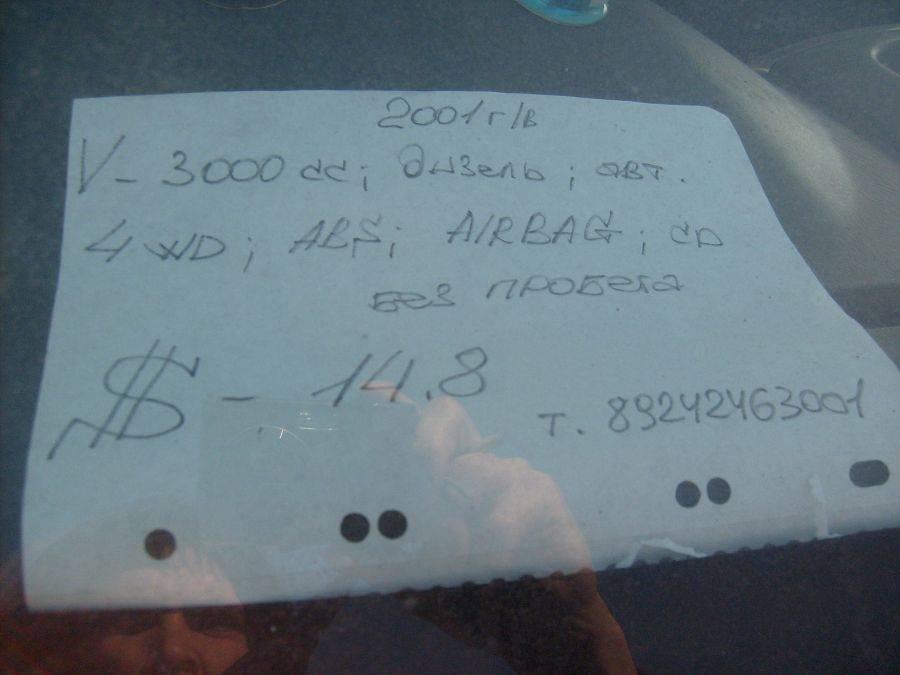 2001 г/в
V - 3000 cc; дизель; авт.
4 WD; ABS; AIRBAG; CD
БЕЗ ПРОБЕГА
$ - 14.8
т. 89242463001